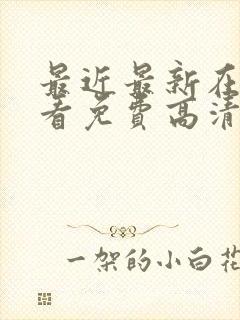 最近最新在
看免费高清
一架的小白花